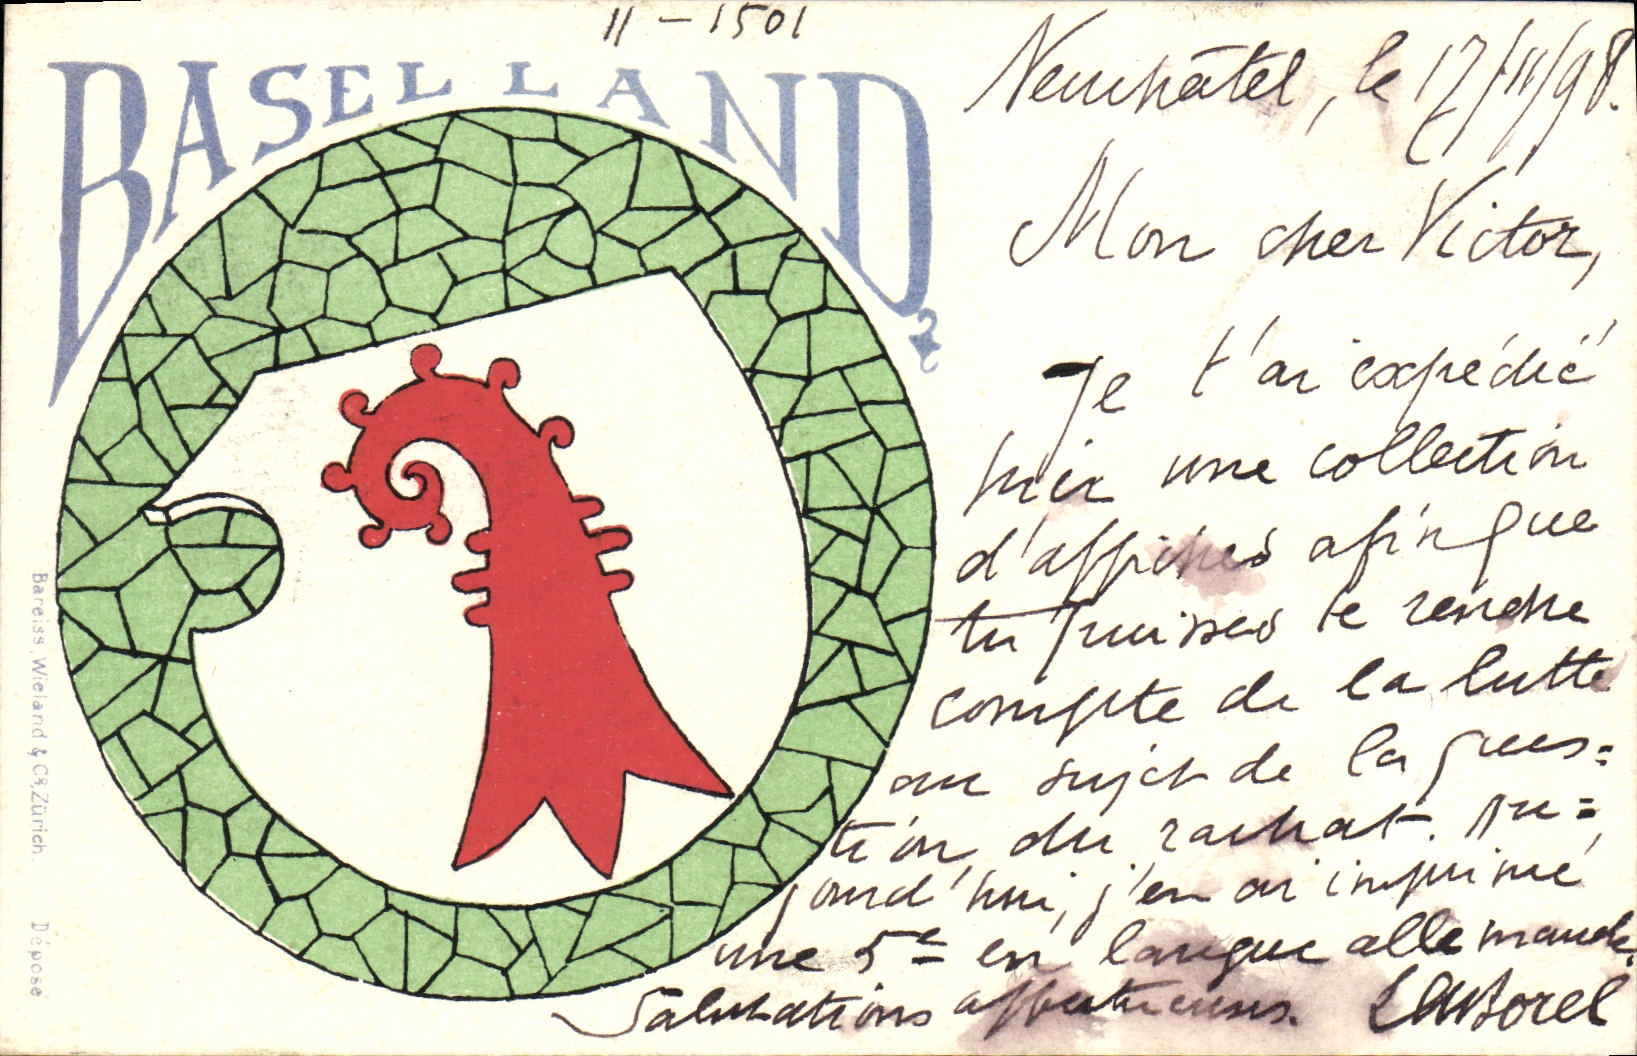 11 - 1501
BASEL LAND
Neuchâtel, le 17/II/98.
Mon cher Victor,
Je t'ai expédié
hier une collection
d'affiches afin que
tu puisses te rendre
compte de la lutte
au sujet de la ques=
tion du rachat. Au=
jourd'hui, j'en ai imprimé
une 5e en langue allemande.
Salutations affectueuses. Borel
Bareiss, Wieland & Co, Zürich. Déposé